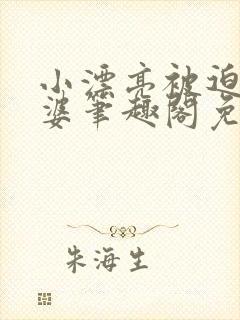 小漂亮被迫
婆笔趣阁免
朱海生